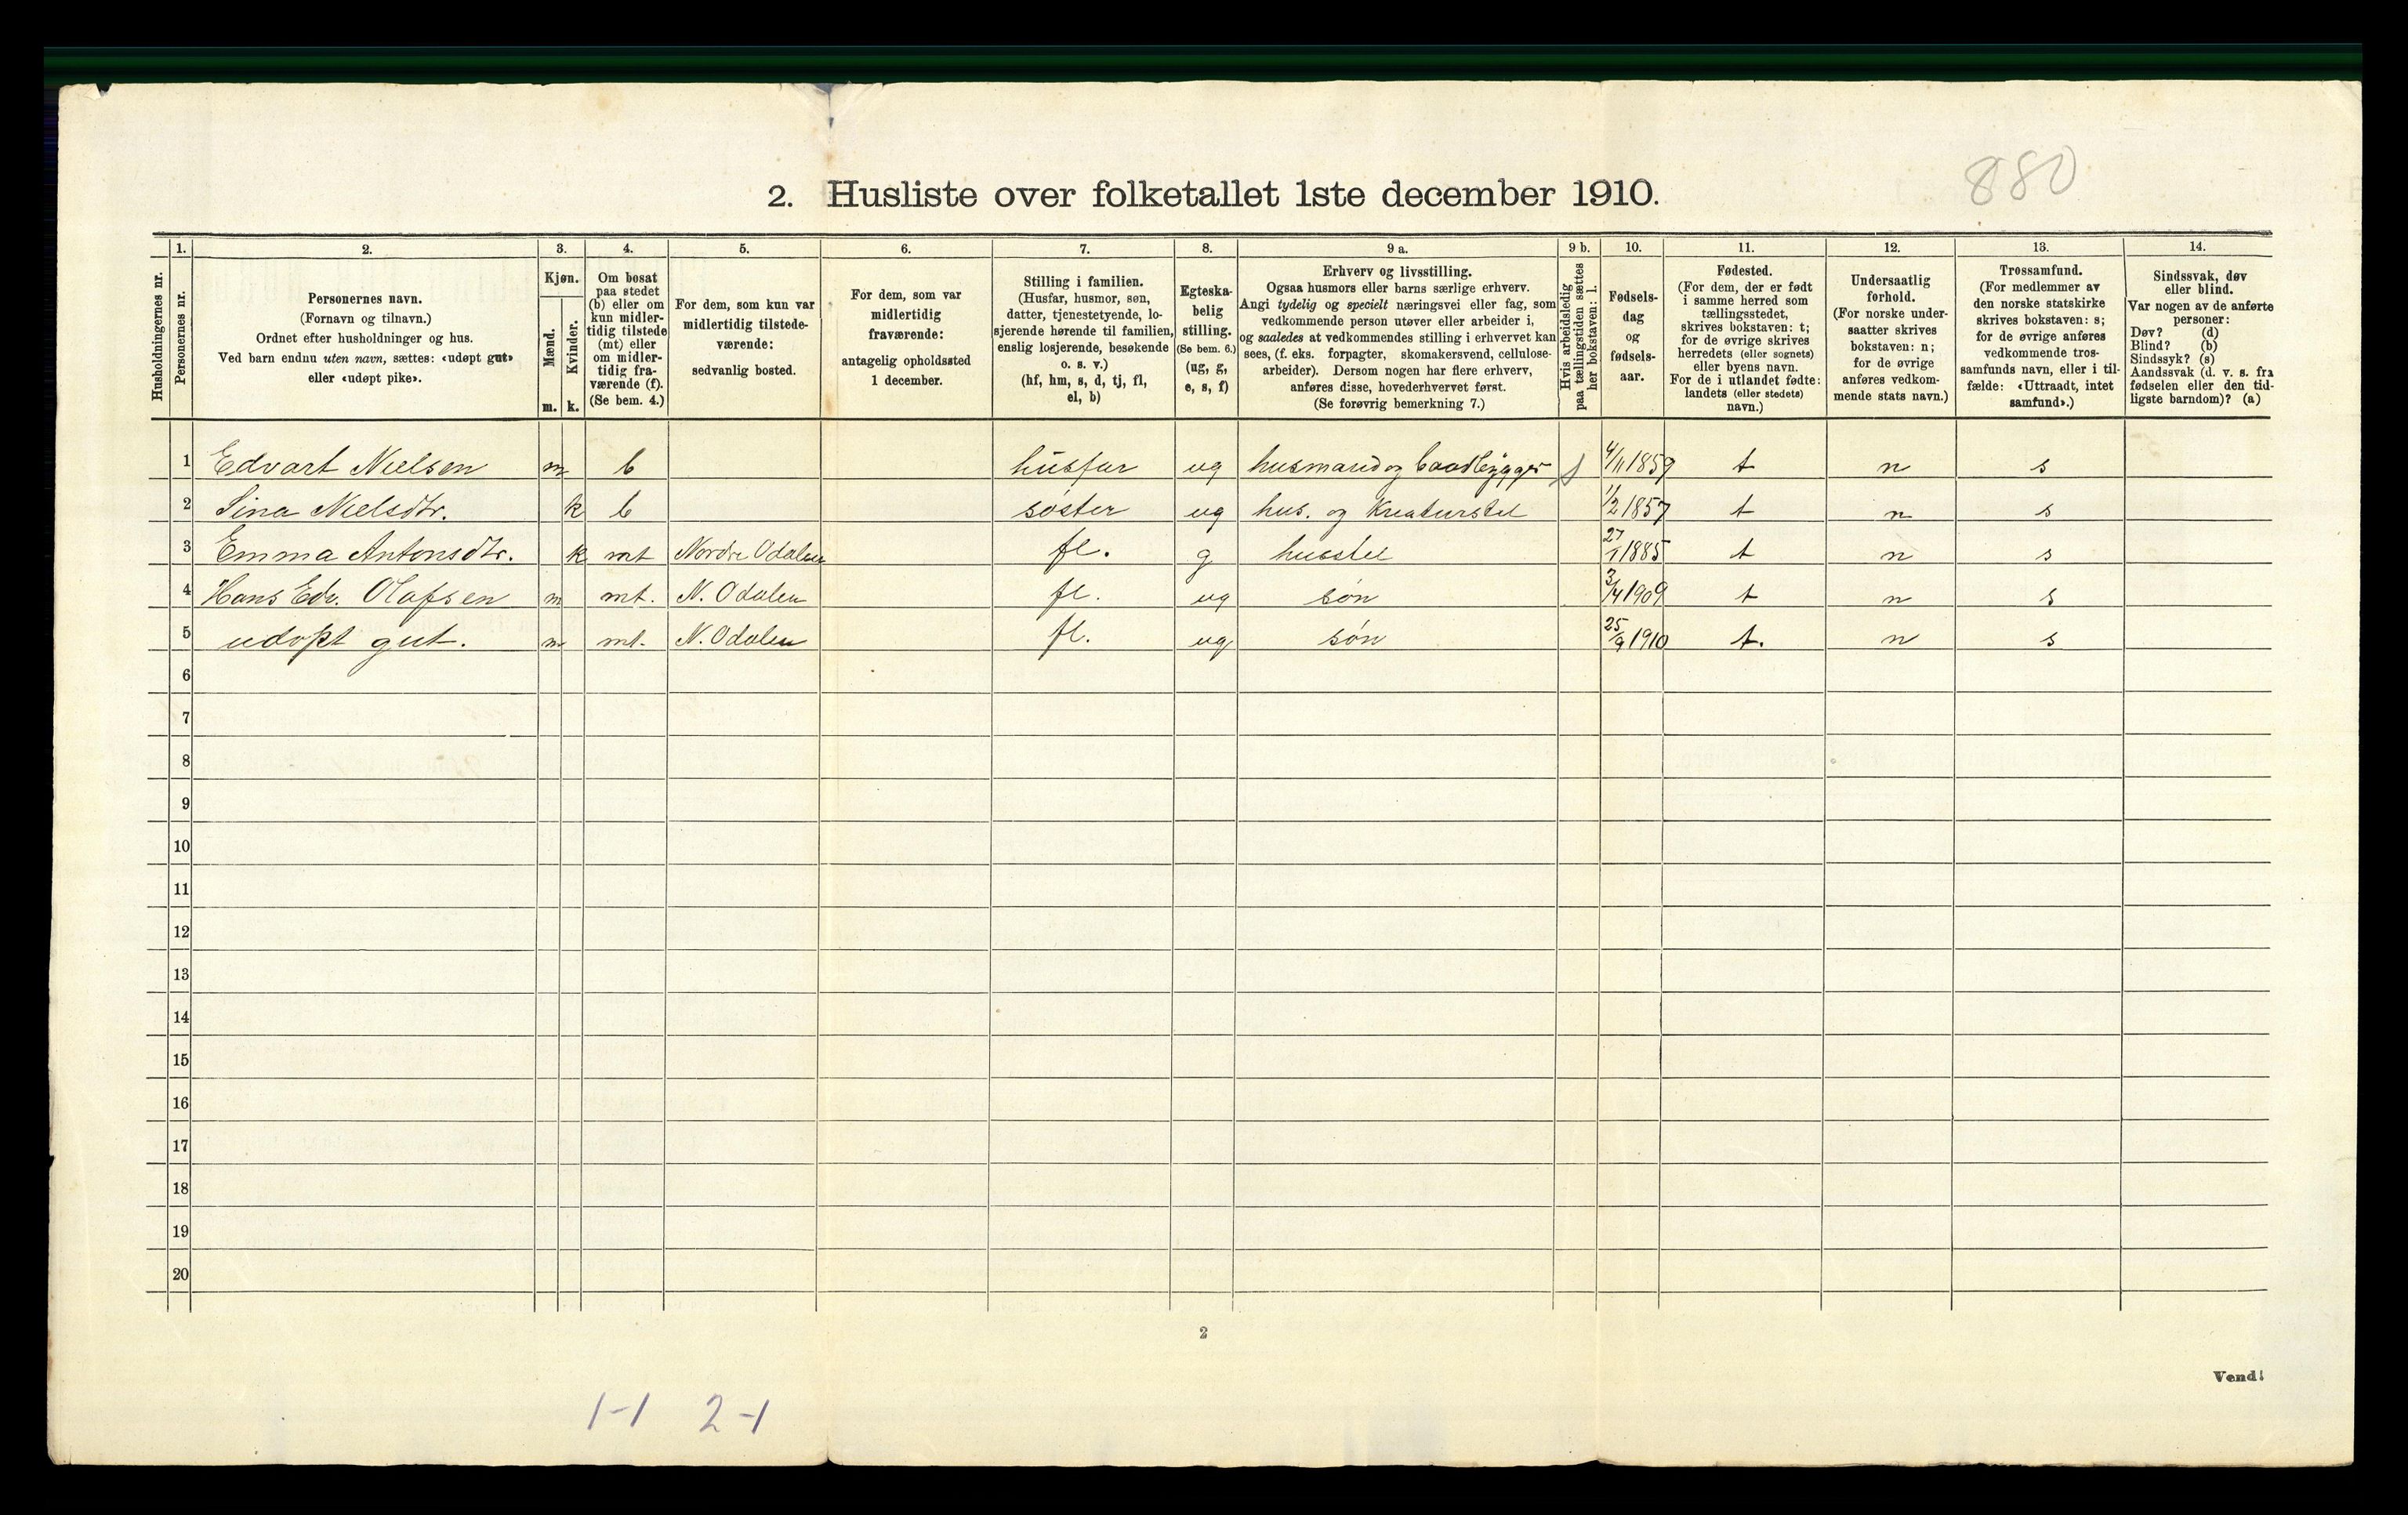 880
2. Husliste over folketallet 1ste december 1910.
Husholdningernes nr.
1.
Personernes nr.
2.
Personernes navn.
(Fornavn og tilnavn.)
Ordnet efter husholdninger og hus.
Ved barn endnu uten navn, sættes: «udøpt gut»
eller «udøpt pike».
3.
Kjøn.
Mænd.
m.
Kvinder.
k.
4.
Om bosat
paa stedet
(b) eller om
kun midler-
tidig tilstede
(mt) eller
om midler-
tidig fra-
værende (f).
(Se bem. 4.)
5.
For dem, som kun var
midlertidig tilstede-
værende:
sedvanlig bosted.
6.
For dem, som var
midlertidig
fraværende:
antagelig opholdssted
1 december.
7.
Stilling i familien.
(Husfar, husmor, søn,
datter, tjenestetyende, lo-
sjerende hørende til familien,
enslig losjerende, besøkende
o. s. v.)
(hf, hm, s, d, tj, fl,
el, b)
8.
Egteska-
belig
stilling.
(Se bem. 6.)
(ug, g,
e, s, f)
9 a.
Erhverv og livsstilling.
Ogsaa husmors eller barns særlige erhverv.
Angi tydelig og specielt næringsvei eller fag, som
vedkommende person utøver eller arbeider i,
og saaledes at vedkommendes stilling i erhvervet kan
sees, (f. eks. forpagter, skomakersvend, cellulose-
arbeider). Dersom nogen har flere erhverv,
anføres disse, hovederhvervet først.
(Se forøvrig bemerkning 7.)
9 b.
Hvis arbeidsledig
paa tællingstiden sættes
her bokstaven: l.
10.
Fødsels-
dag
og
fødsels-
aar.
11.
Fødested.
(For dem, der er født
i samme herred som
tællingsstedet,
skrives bokstaven: t;
for de øvrige skrives
herredets (eller sognets)
eller byens navn.
For de i utlandet fødte:
landets (eller stedets)
navn.)
12.
Undersaatlig
forhold.
(For norske under-
saatter skrives
bokstaven: n;
for de øvrige
anføres vedkom-
mende stats navn.)
13.
Trossamfund.
(For medlemmer av
den norske statskirke
skrives bokstaven: s;
for de øvrige anføres
vedkommende tros-
samfunds navn, eller i til-
fælde: «Uttraadt, intet
samfund».)
14.
Sindssvak, døv
eller blind.
Var nogen av de anførte
personer:
Døv? (d)
Blind? (b)
Sindssyk? (s)
Aandssvak (d. v. s. fra
fødselen eller den tid-
ligste barndom)? (a)
1 Edvart Nielsen m b husfar ug husmand og baadbygger 4/11 1859 t n s
2 Sina Nielsdtr. k b søster ug hus. og Kreaturstel 1/2 1857 t n s
3 Emma Antonsdtr. k mt Nordre Odalen fl. g husstel 27/1 1885 t n s
4 Hans Edv. Olafsen m mt. N. Odalen fl. ug søn 3/4 1909 t n s
5 udøpt gut. m mt. N. Odalen fl. ug søn 25/9 1910 t. n s
6
7
8
9
10
11
12
13
14
15
16
17
18
19
20
2
Vend!
1-1 2-1